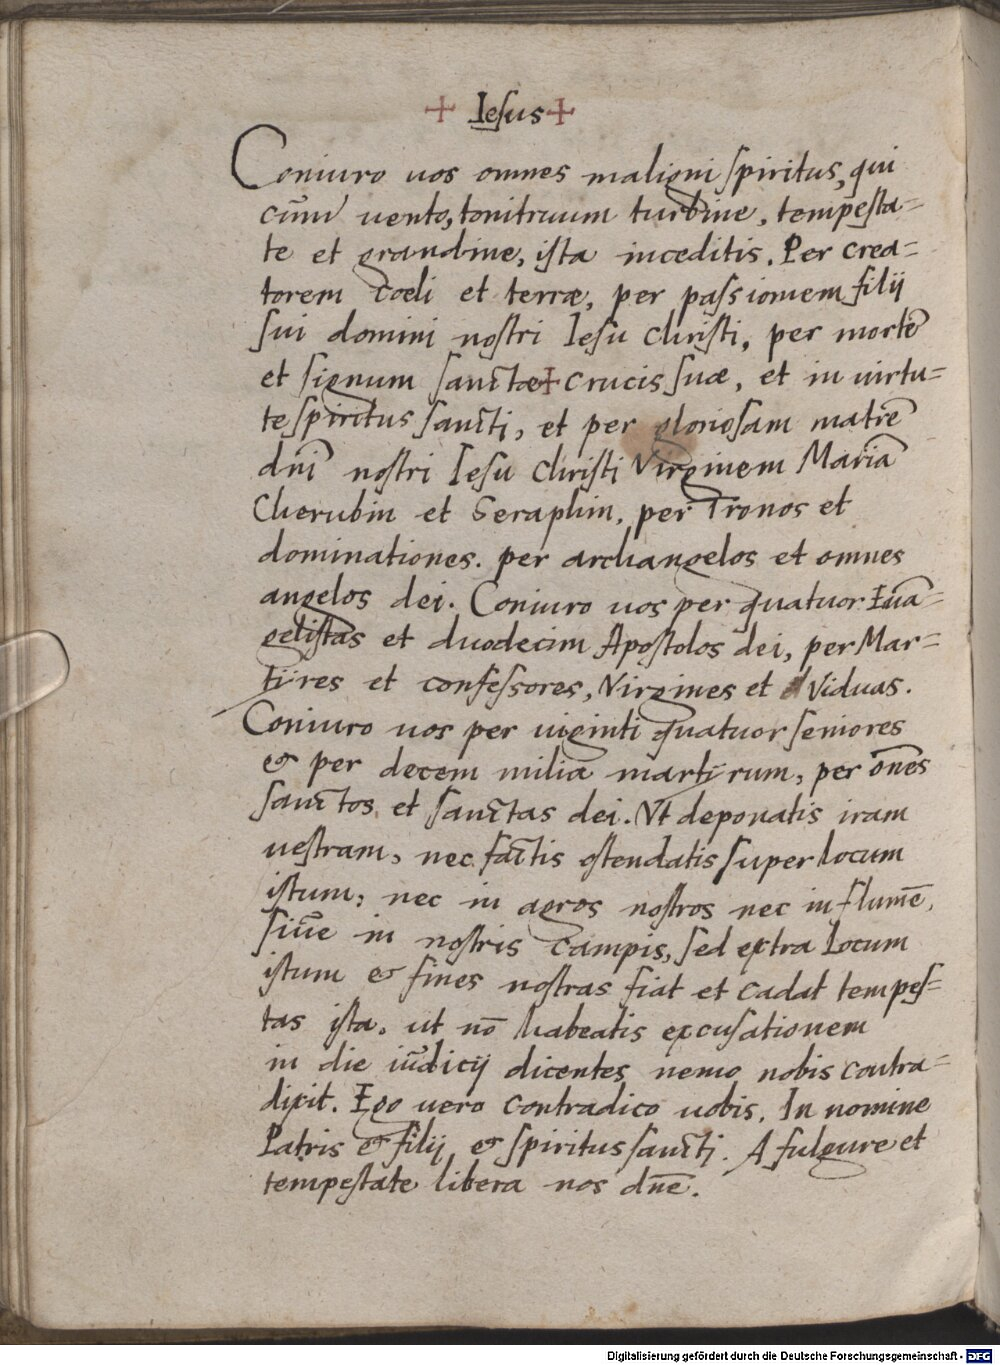 + Iesus +
Coniuro uos omnes maligni spiritus, qui
cum̄ uento, tonitruum turbine, tempesta=
te et grandine, ista inceditis. Per crea=
torem coeli et terræ, per passionem filij
sui domini nostri Iesu Christi, per mortē
et signum sanctæ + crucis suæ, et in uirtu=
te spiritus sancti, et per gloriosam matrē
dn̄i nostri Iesu Christi Virginem Mariā
Cherubin et Seraphin, per Tronos et
dominationes. per archangelos et omnes
angelos dei. Coniuro uos per quatuor Euā=
gelistas et duodecim Apostolos dei, per Mar=
tires et confessores, Virgines et Viduas.
Coniuro uos per uiginti quatuor seniores
& per decem milia martyrum, per om̄es
sanctos et sanctas dei. Vt deponatis iram
uestram, nec factis ostendatis super locum
istum, nec in agros nostros nec in flumē,
siūe in nostris campis, sed extra locum
istum & fines nostras fiat et cadat tempes=
tas ista, ut nō habeatis excusationem
in die iūdicij dicentes nemo nobis contra=
dixit. Ego uero contradico uobis. In nomine
Patris & filij & spiritus sancti. A fulgure et
tempestate libera nos dn̄e.
Digitalisierung gefördert durch die Deutsche Forschungsgemeinschaft - DFG